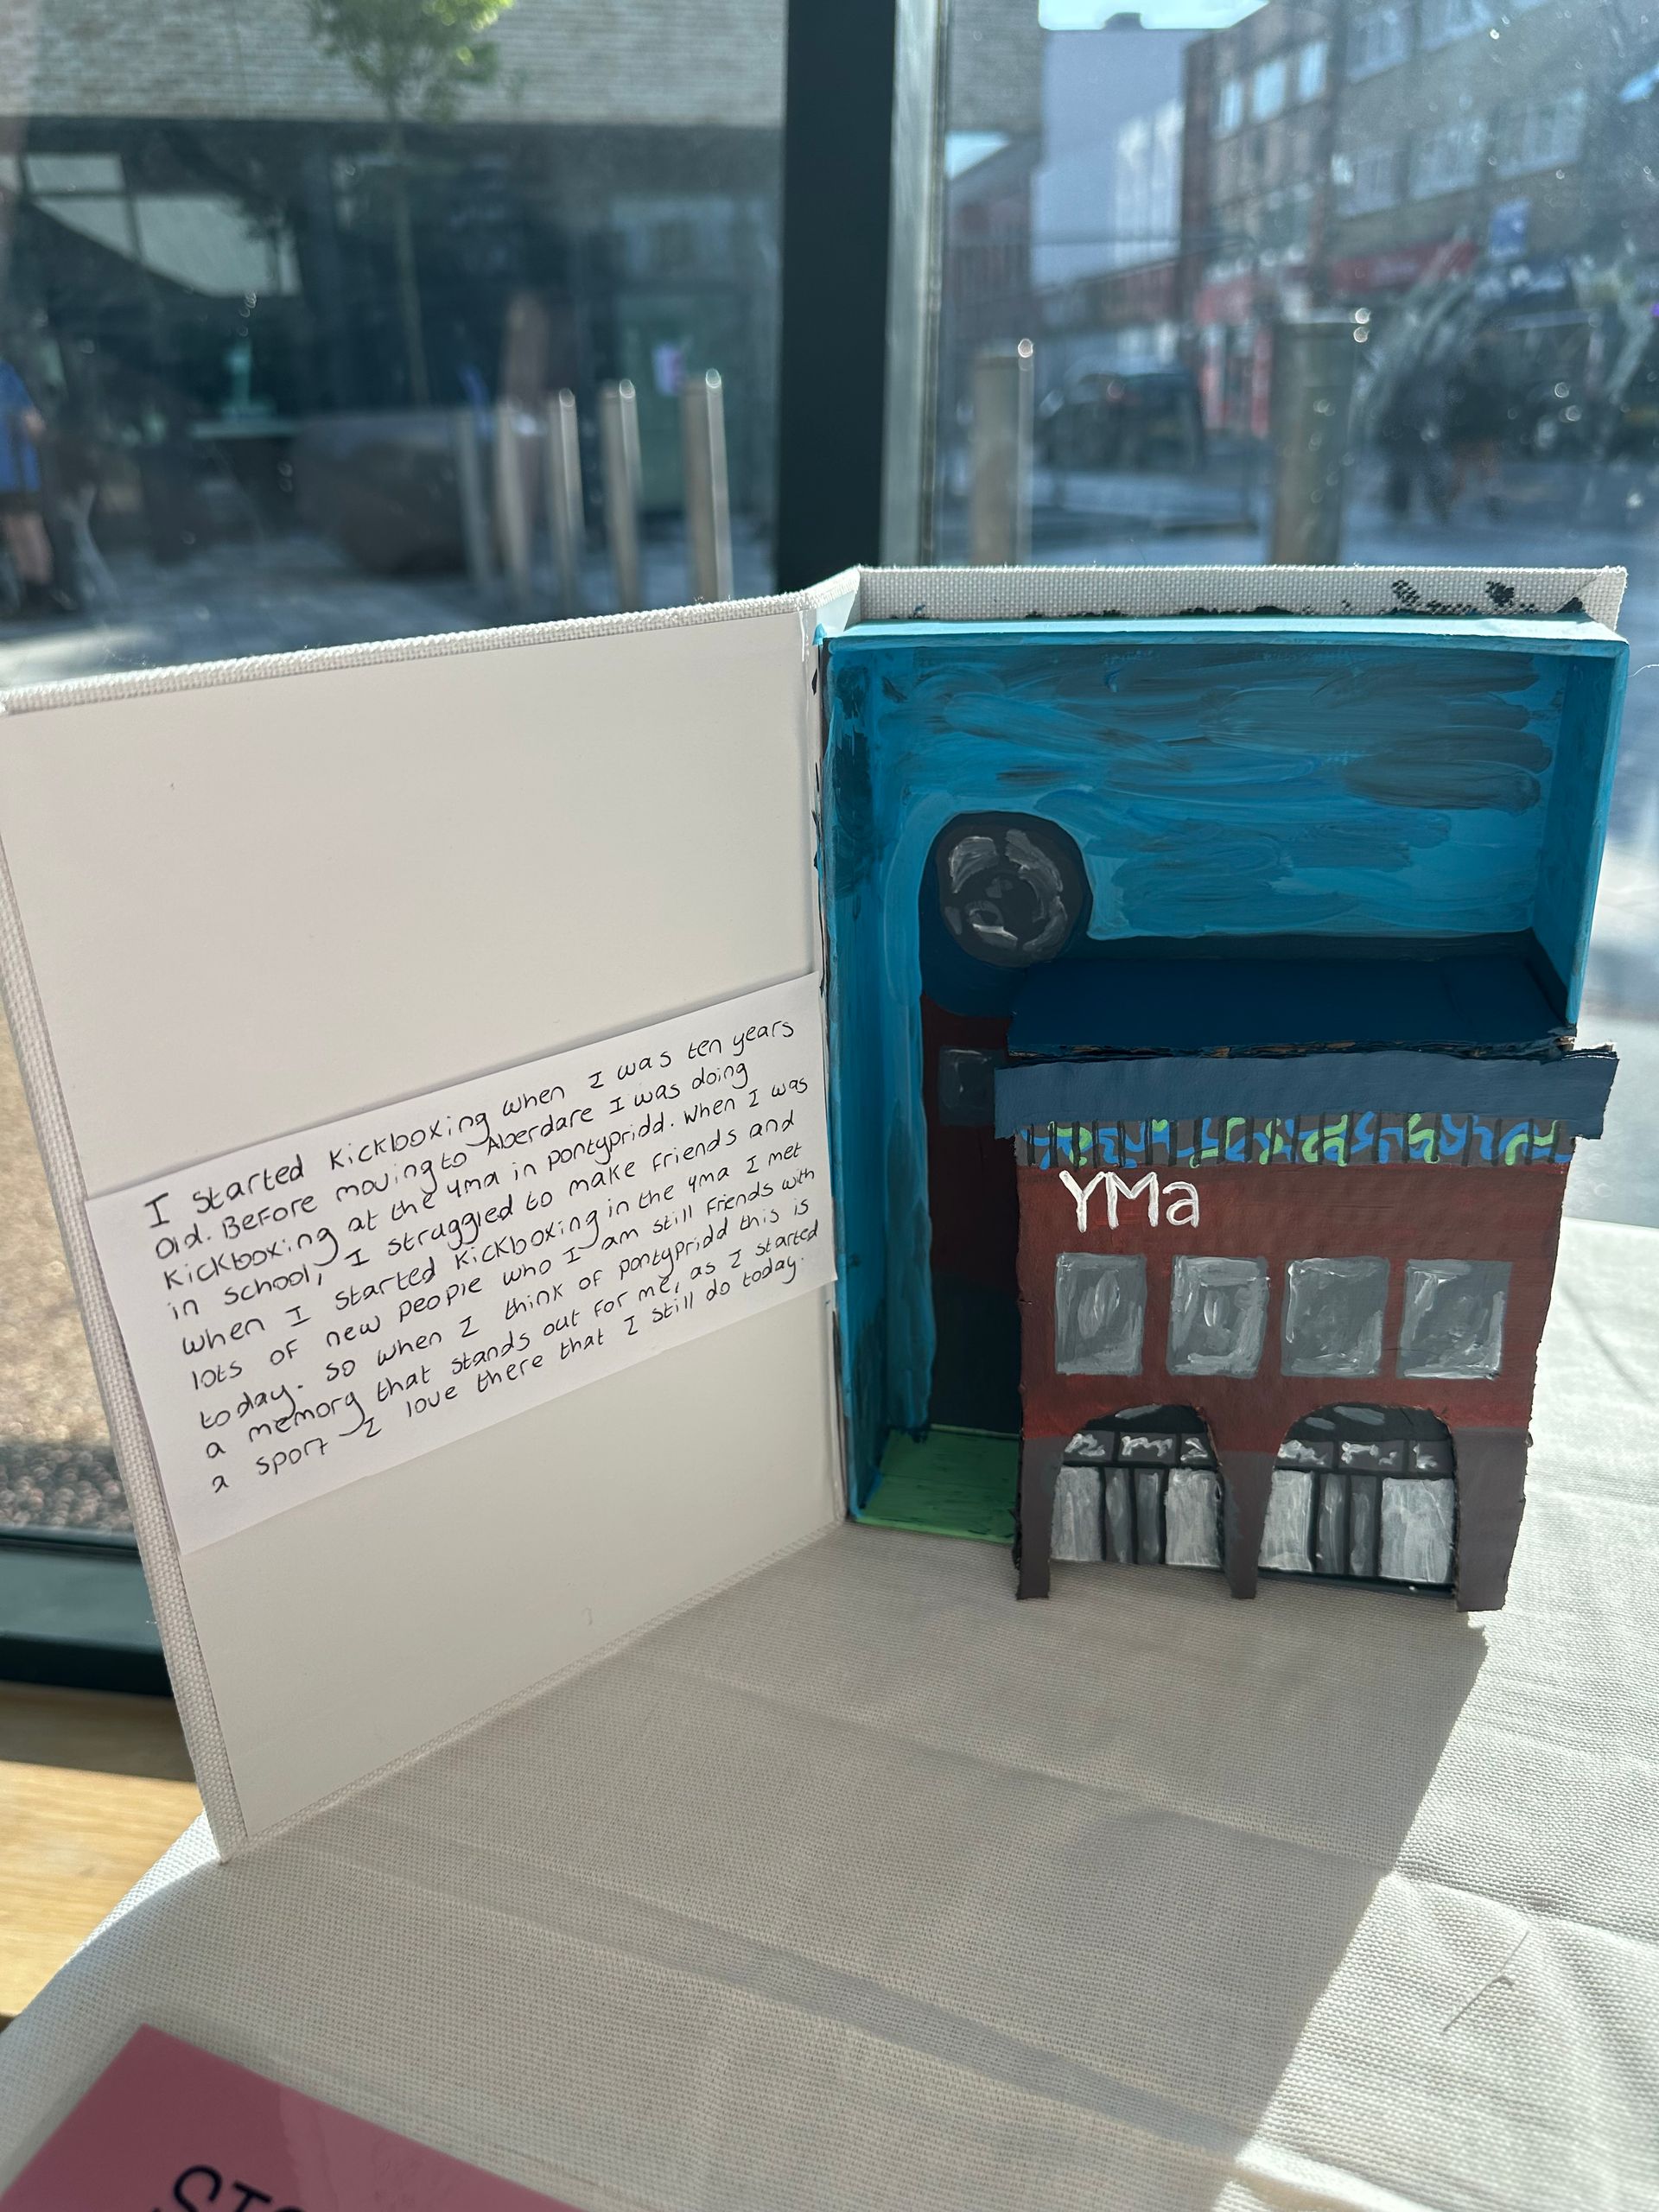 I started Kickboxing when I was ten years
old. Before moving to Aberdare I was doing
Kickboxing at the yma in pontypridd. When I was
in school, I struggled to make friends and
when I started Kickboxing in the yma I met
lots of new people who I am still friends with
today. so when I think of pontypridd this is
a memory that stands out for me, as I started
a sport I love there that I still do today.
YMa